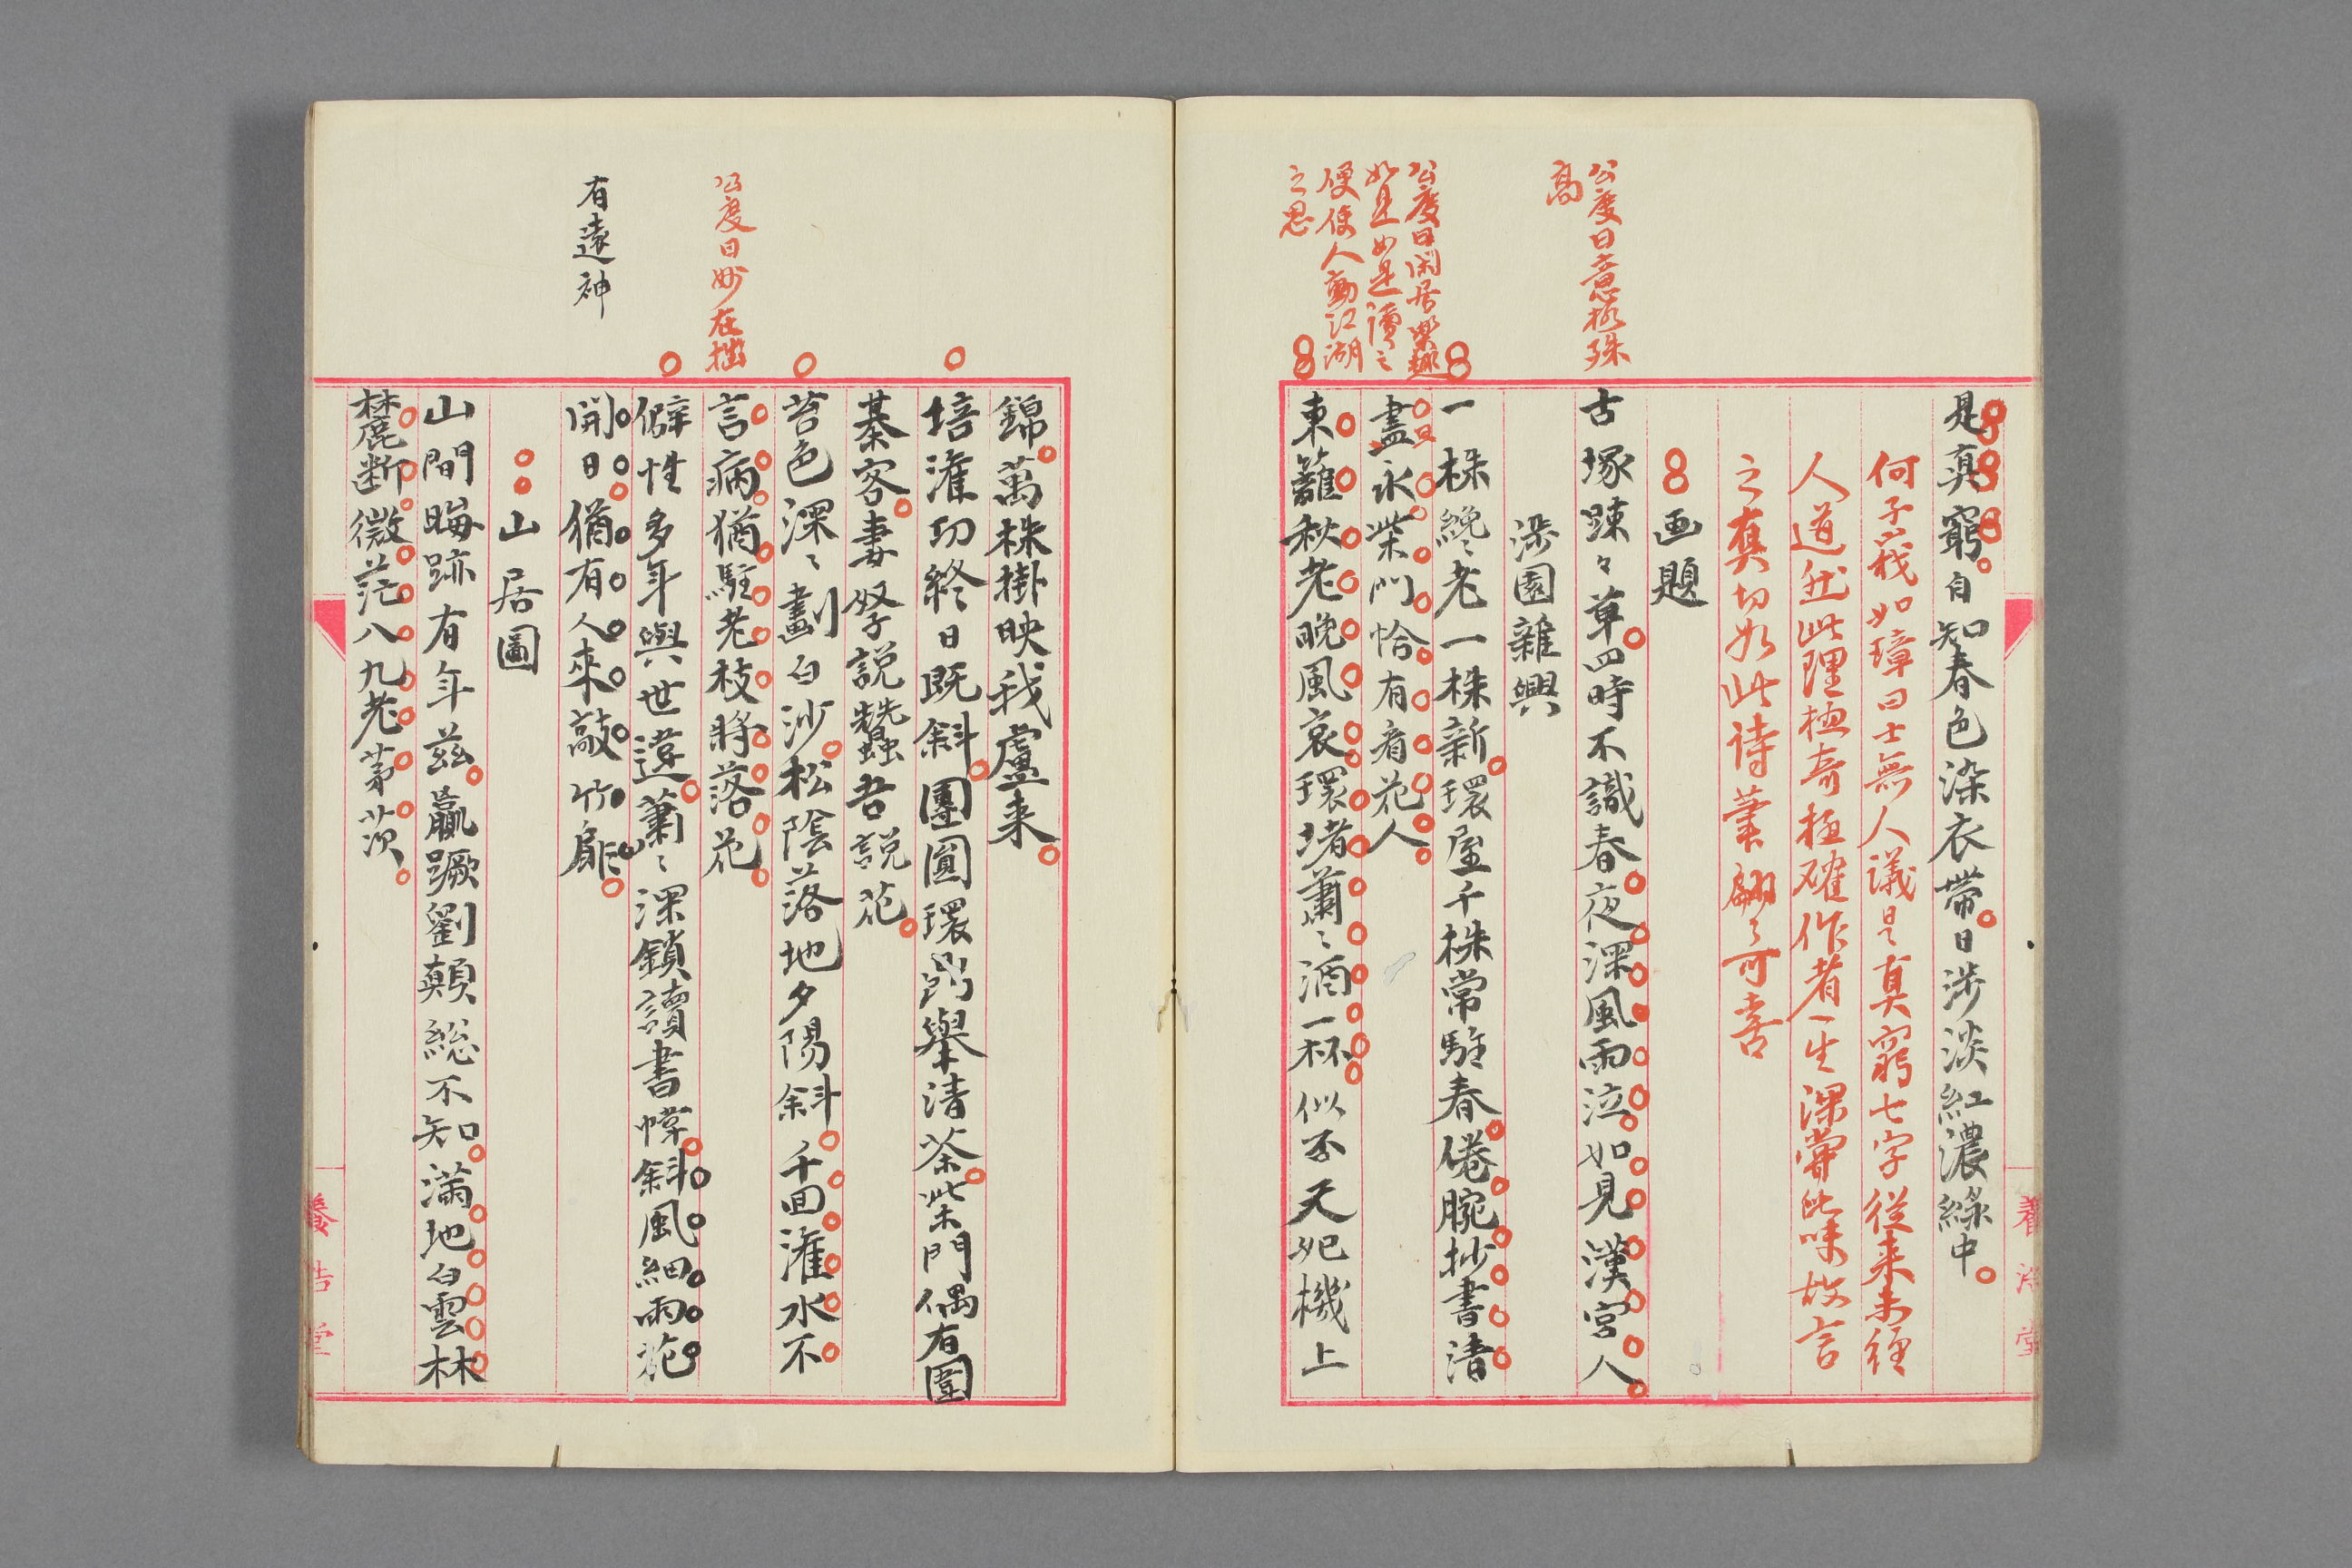 是真窮自知春色染衣帶日涉淡紅濃綠中
何子峩如璋曰士無人議是真窮七字從来未經
人道然此理極奇極確作者一生深嘗此味故言
之真切如此诗筆翩々可喜
画題
公度曰意極殊
高
古塚踈々草四時不識春夜深風雨泣如見漢宮人
涉園雜興
一株纔老一株新環屋千株常駐春倦腕抄書清
公度曰閑居樂趣
如是如是讀之
便使人動江湖
之思
晝永柴門恰有看花人
東籬秋老晚風哀環堵蕭々酒一杯似否天妃機上
養浩堂
錦萬株掛映我廬来
培灌功終日既斜團圓環興擧清茶柴門偶有圍
棊客妻孥説蠶吾説花
苔色深々劃白沙松陰落地夕陽斜千回灌水不
公度曰妙在拙
言病猶駐老枝將落花
僻性多年與世違蕭々深鎖讀書幃斜風細雨花
有遠神
開日猶有人來敲竹扉
山居圖
山間晦跡有年茲贏蹶劉顛総不知滿地白雲林
麓断微茫八九老茅茨
養浩堂